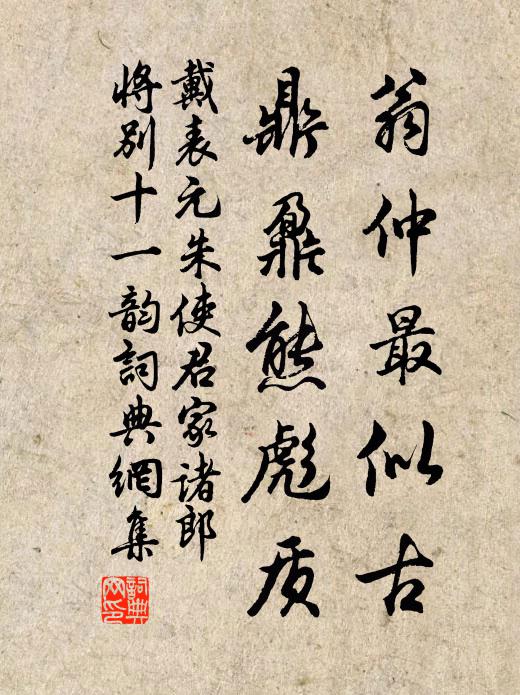 翁仲最似古
鼎鼐熊彪质
戴表元朱使君家诸郎
将别十一韵词典网集
词典网印